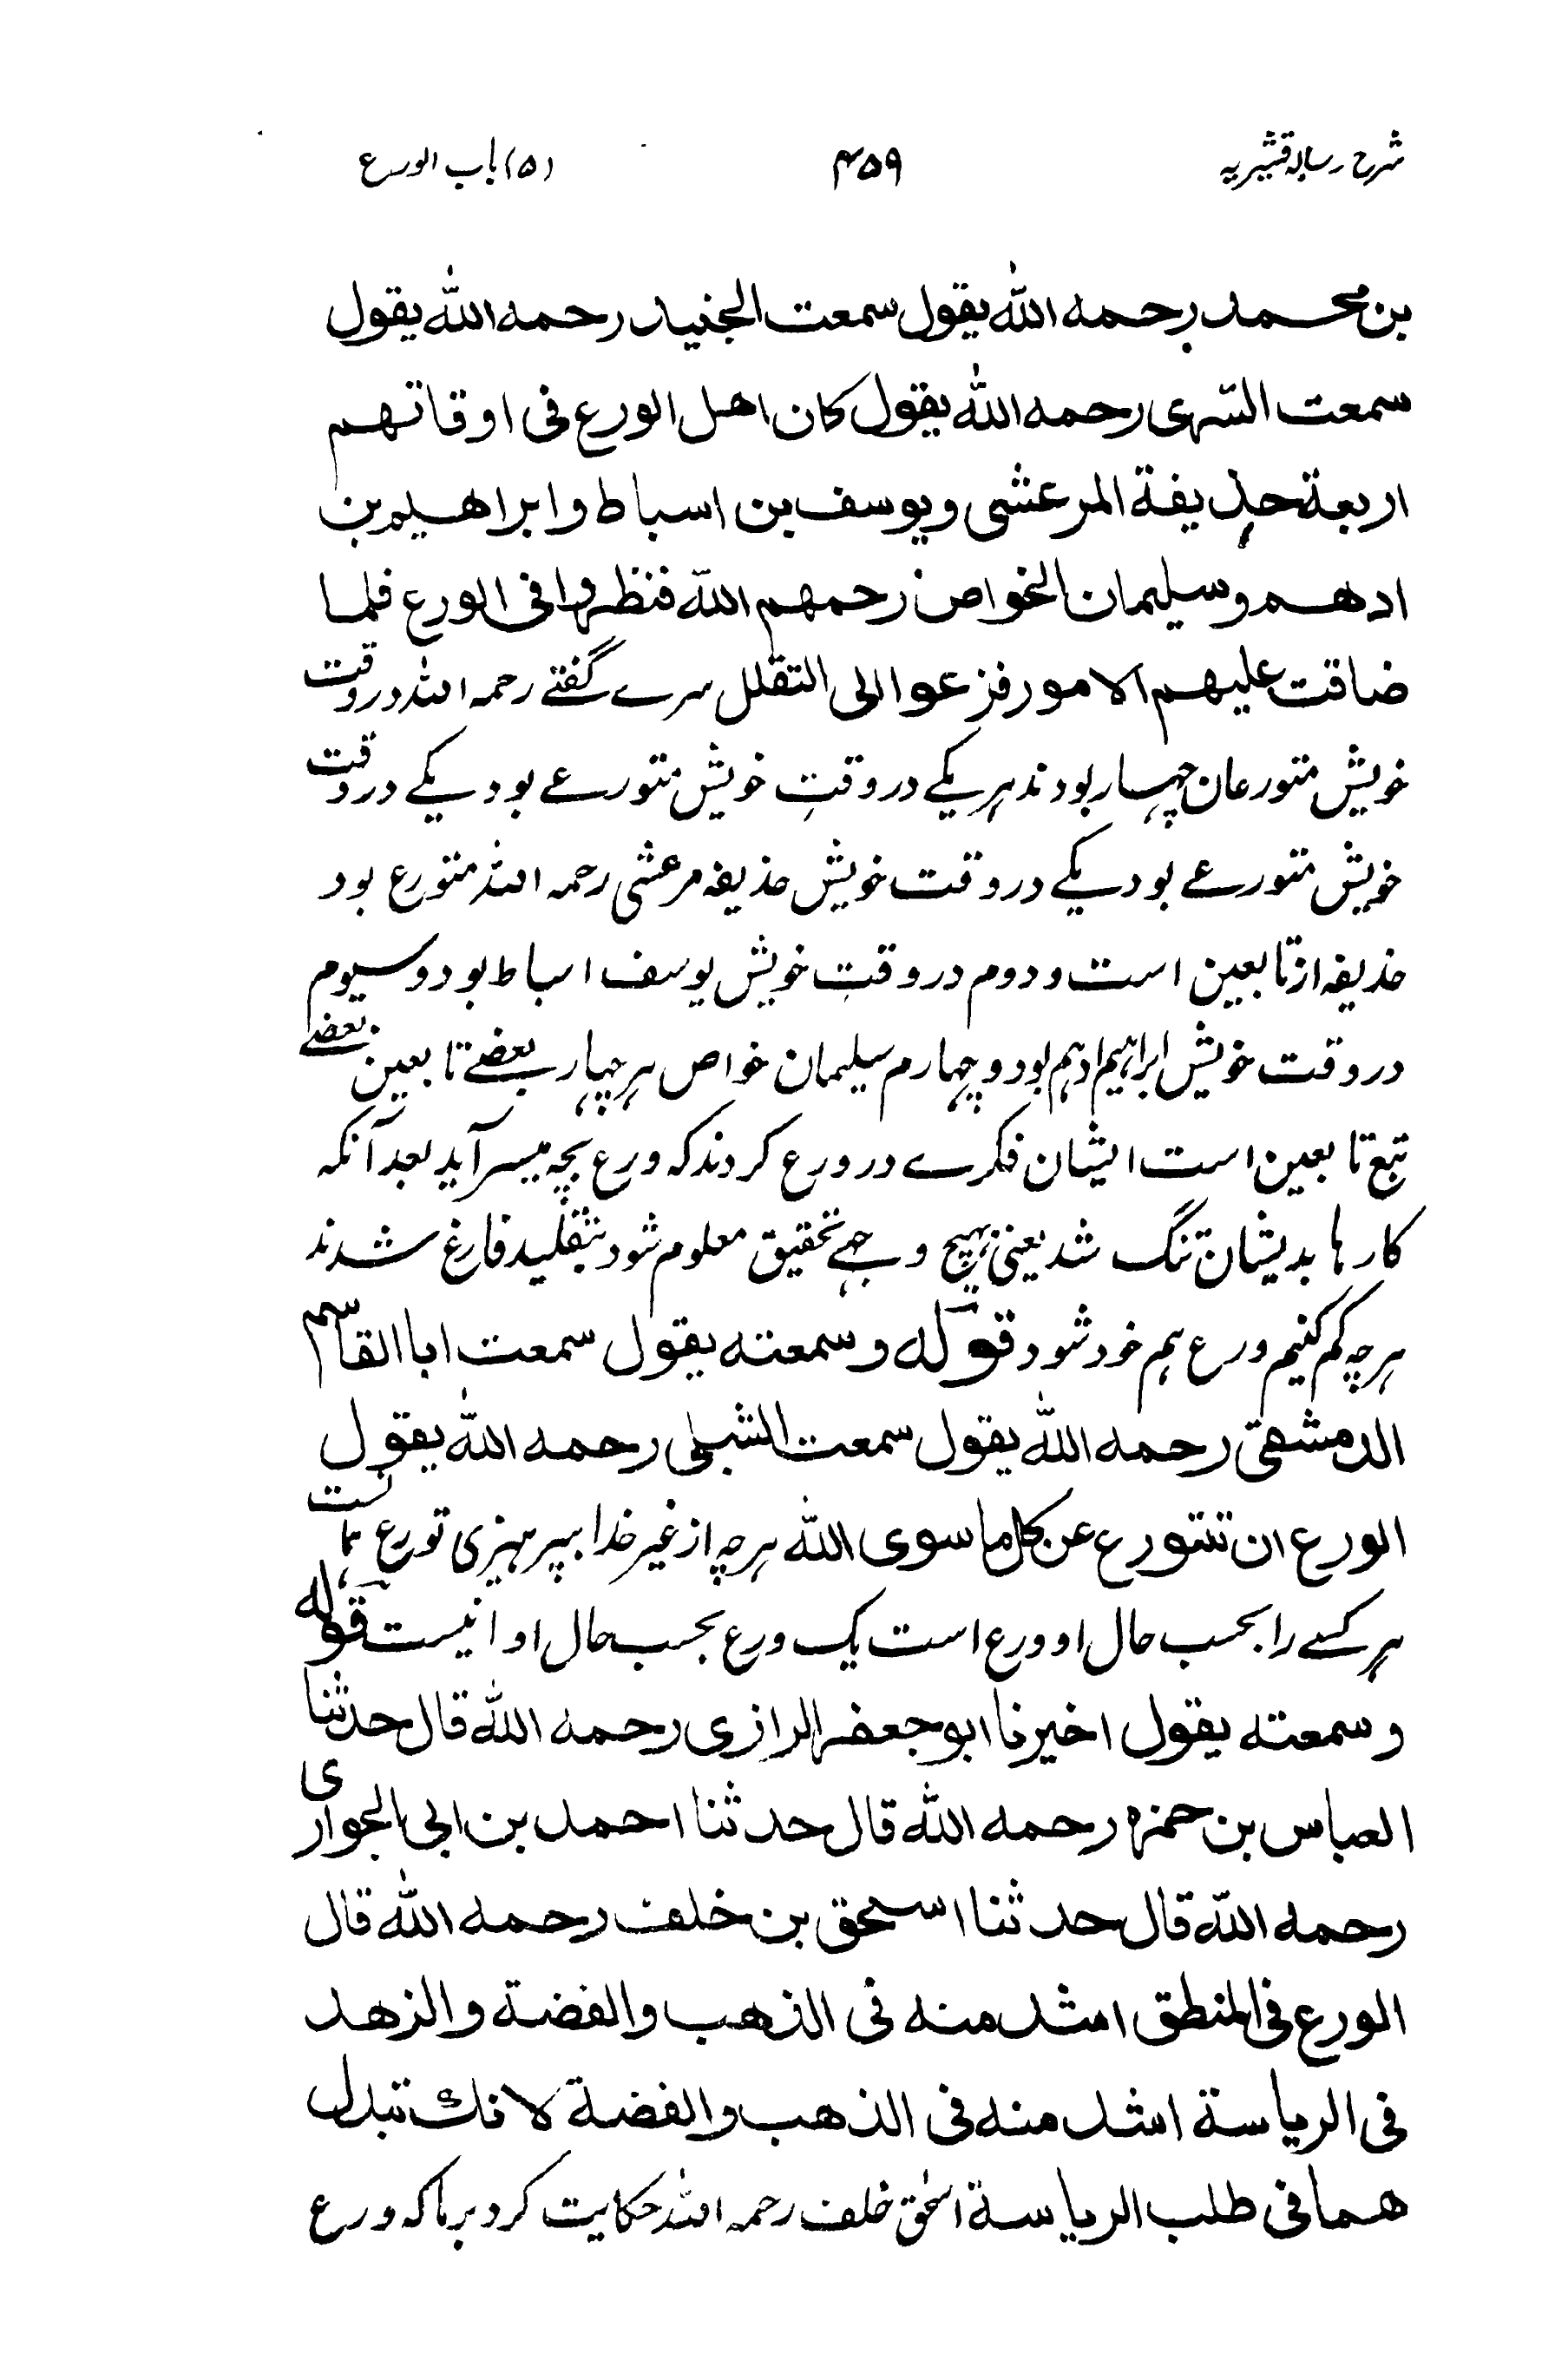 شرح رسالہ قشیریہ ۴۵۹ (۵) باب الورع
بن محمد رحمه الله يقول سمعت الجنيد رحمه الله يقول
سمعت السّرى رحمه الله يقول كان اهل الورع فى اوقاتهم
اربعة حذيفة المرعشى ويوسف بن اسباط وابراهيم بن
ادهم وسليمان الخواص رحمهم اللّه فنظروا فى الورع فلما
ضاقت عليهم الامور فزعوا الى التقلل سرے گفتے رحمہ اللہ در وقت
خویش متورعان چہار بودند ہر یکے در وقتِ خویش متورعے بود یکے در وقت
خویش متورعے بود یکے در وقت خویش حذیفہ مرعشی رحمہ اللہ متورع بود
حذیفہ از تابعین است و دوم در وقتِ خویش یوسف اسباط بود و سیوم
در وقت خویش ابراہیم ادہم بود و چہارم سلیمان خواص ہر چہار بعضے تابعین بعضے
تبع تابعین است ایشان فکرے در ورع کردند کہ ورع بچہ میسر آید بعد آنکہ
کارہا بدیشان تنگ شد یعنی بہیچ وجہے تحقیق معلوم شود بتقلید فارغ شدند
ہرچہ کم کنیم ورع ہم خود شود قوله وسمعته يقول سمعت ابا القاسم
الدمشقى رحمه الله يقول سمعت الشبلى رحمه الله يقول
الورع ان تتورع عن كل ما سوى الله ہرچہ از غیر خدا بپرہیزی تورع
ہر کسے را بحسب حال او ورع است یک ورع بحسب حال او انیست قوله
وسمعته يقول اخبرنا ابو جعفر الرازى رحمه الله قال حدثنا
العباس بن حمزه رحمه الله قال حدثنا احمد بن ابى الحوارى
رحمه اللّه قال حدثنا اسحق بن خلف رحمه الله قال
الورع فى المنطق اشد منه فى الذهب والفضة والزهد
فى الرياسة اشد منه فى الذهب والفضة لانك تبدل
هما فى طلب الرياسة اسحٰق خلف رحمہ اللہ حکایت کرد برما کہ ورع